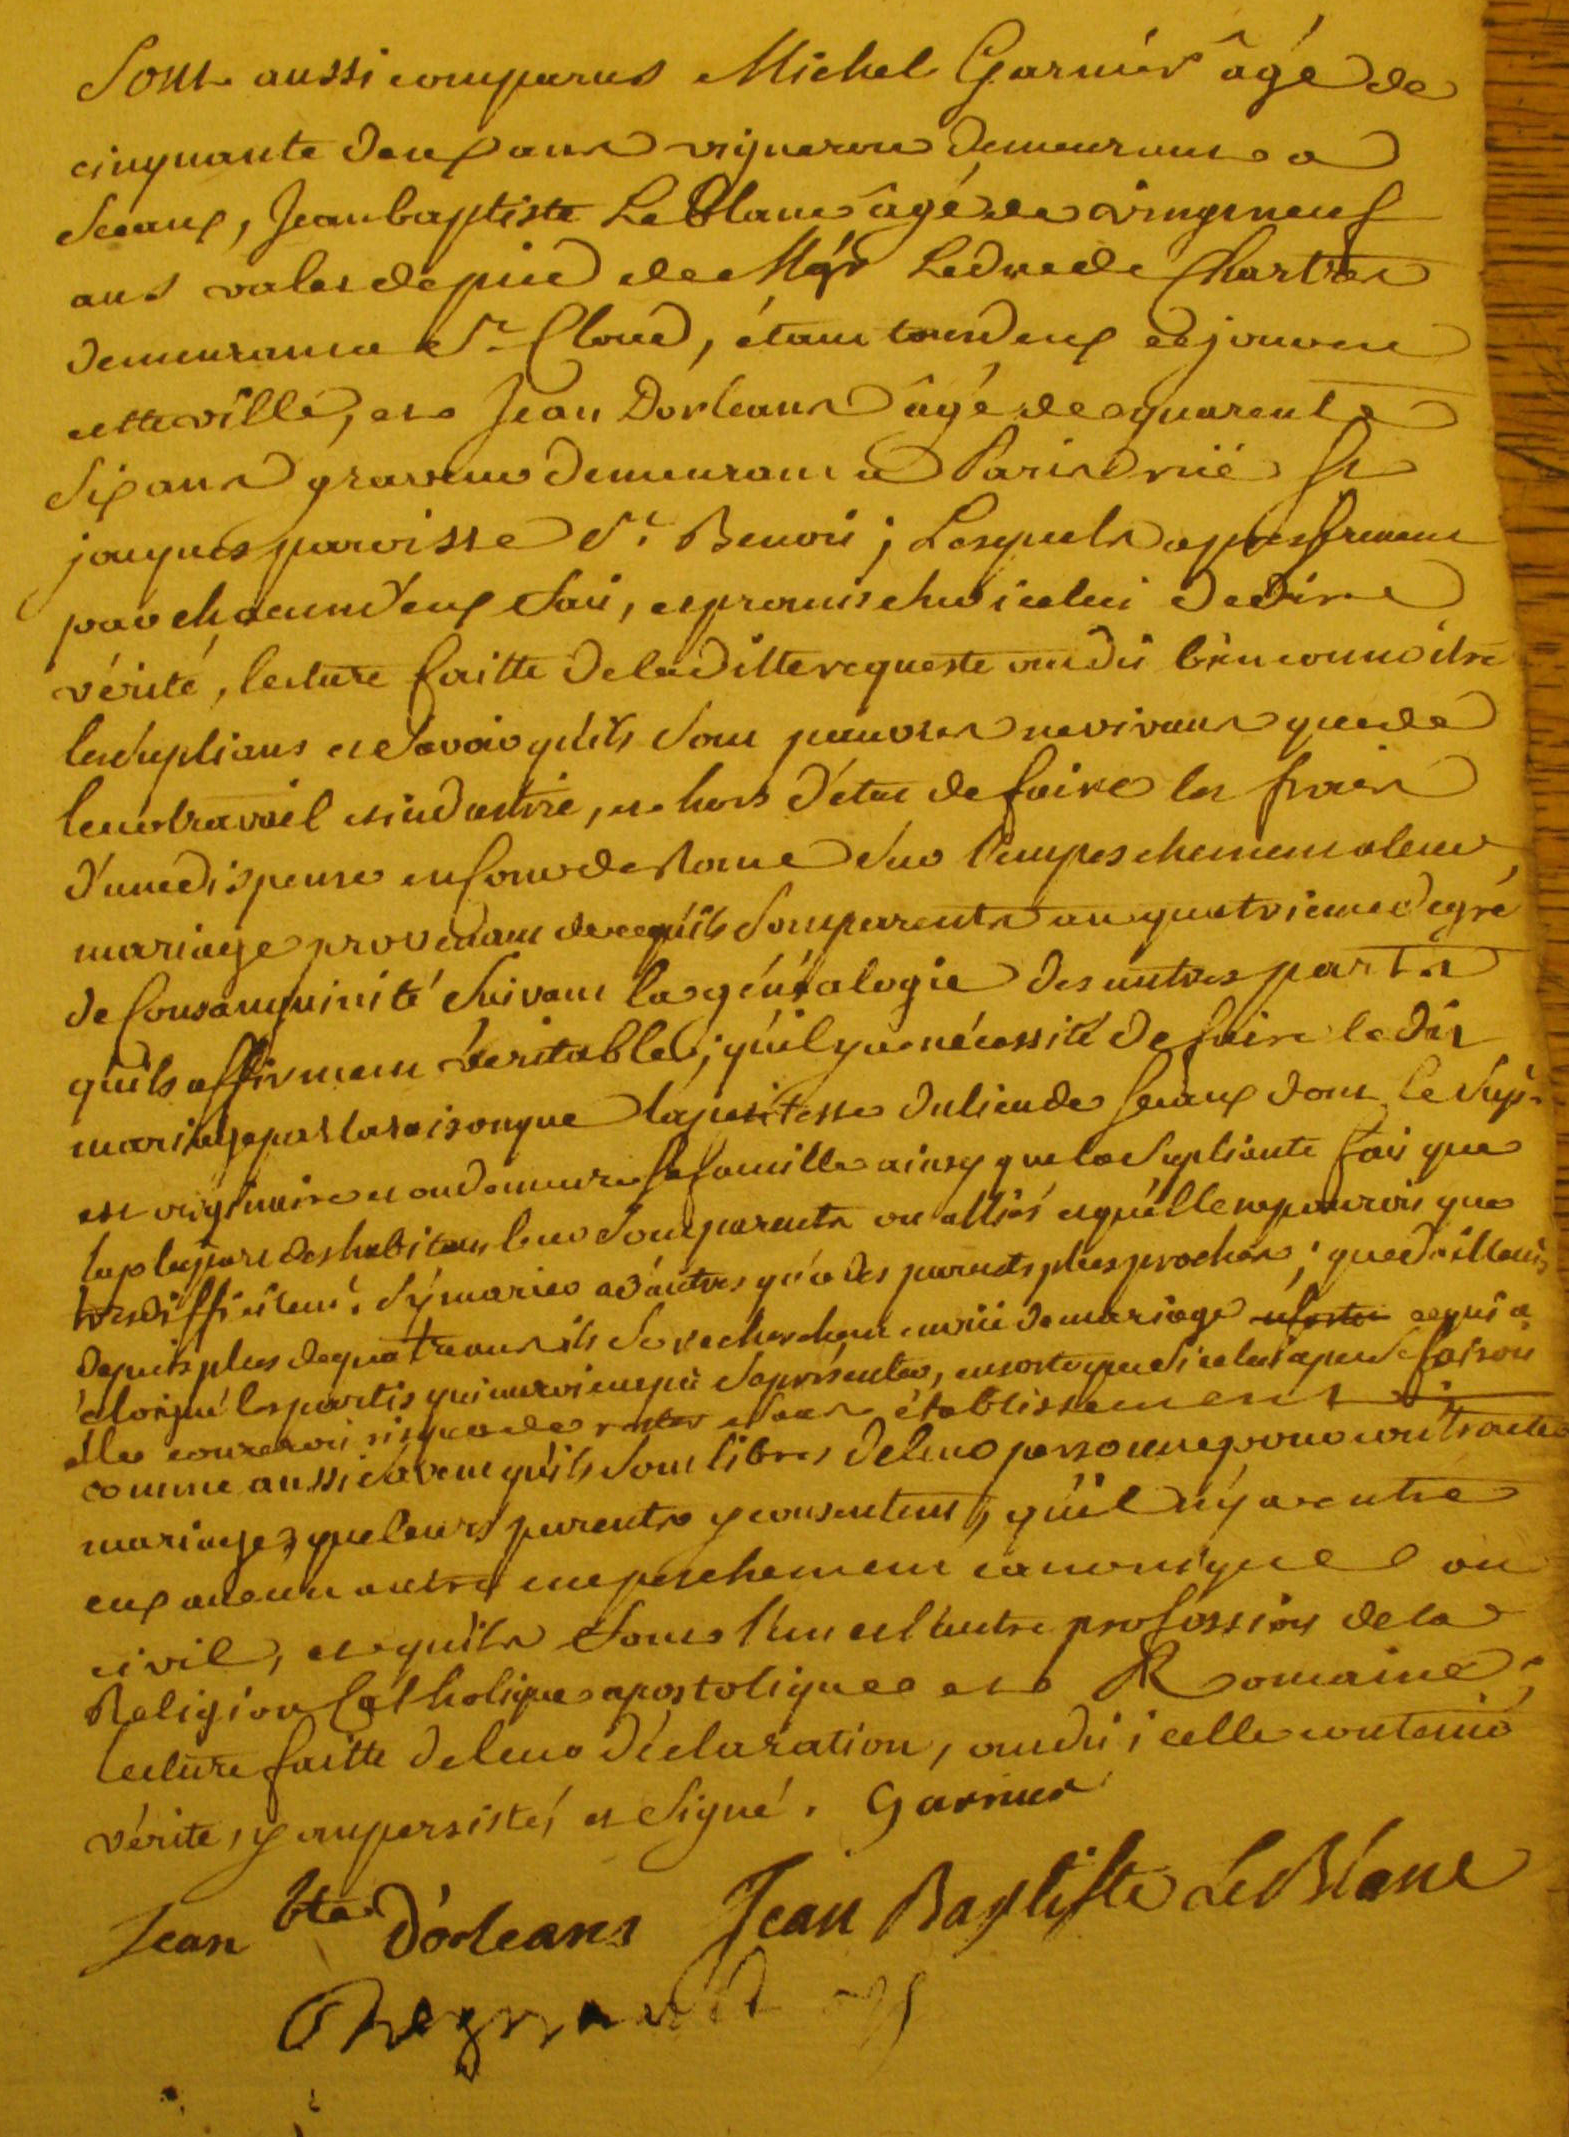 Sont aussi comparus Michel Garnier âgé de
cinquante deux ans vigneron demeurant a
Sceaux, Jean baptiste Le Blanc âgé de vingt neuf
ans valet de pied de Mgr Le duc de Chartres
demeurant a St Cloud, étant tous deux ce jour en
cette ville, et Jean Dorleans âgé de quarente
six ans graveur demeurant a Paris ruë St
jacques paroisse St Benoit; Lesquels apres serment
par chacun d'eux fait, et promis sur icelui de dire
vérité, lecture faitte de la ditte requeste ont dit bien connoitre
les suplians et savoir qu'ils sont pauvres ne vivans que de
leur travail et industrie, et hors d'état de faire les frais
d'une dispense en Cour de Rome sur l'empeschement a leur
mariage provenant de ce qu'ils sont parents au quatrieme degré
de Consanguinité suivant la généalogie des autres parts
qu'ils affirment veritable; qu'il y a nécessité de faire le dit
mariage par la raison que la petitesse du lieu de Sceaux dont le Sup.
est originaire et ou demeure sa famille ainsy que la Supliante fait que
la plupart des habitans leur sont parents ou alliés et qu'elle ne pouroit que
tres difficilemt. s'y marier a d'autres qu'a des parents plus proches; que d'ailleurs
depuis plus de quatre ans ils se recherchent en vuë de mariage ce qui a
éloigné les partis qui auroient pû se présenter, en sorte que si celui a peu se faisoit
elle coureroit risque de rester sans établissement
comme aussi savent qu'ils sont libres de leur personne pour contracter
mariage, que leurs parents y consentent, qu'il n'y a entre
eux aucun autre empeschement canonique ou
civil, et qu'ils font l'un et l'autre profession de la
Religion Catholique apostolique et Romaine;
lecture faitte de leur déclaration, ont dit icelle contenir
vérité, y ont persisté, et signé. Garnier
Jean Bte D'orleans Jean Baptiste Le Blanc
Regnault